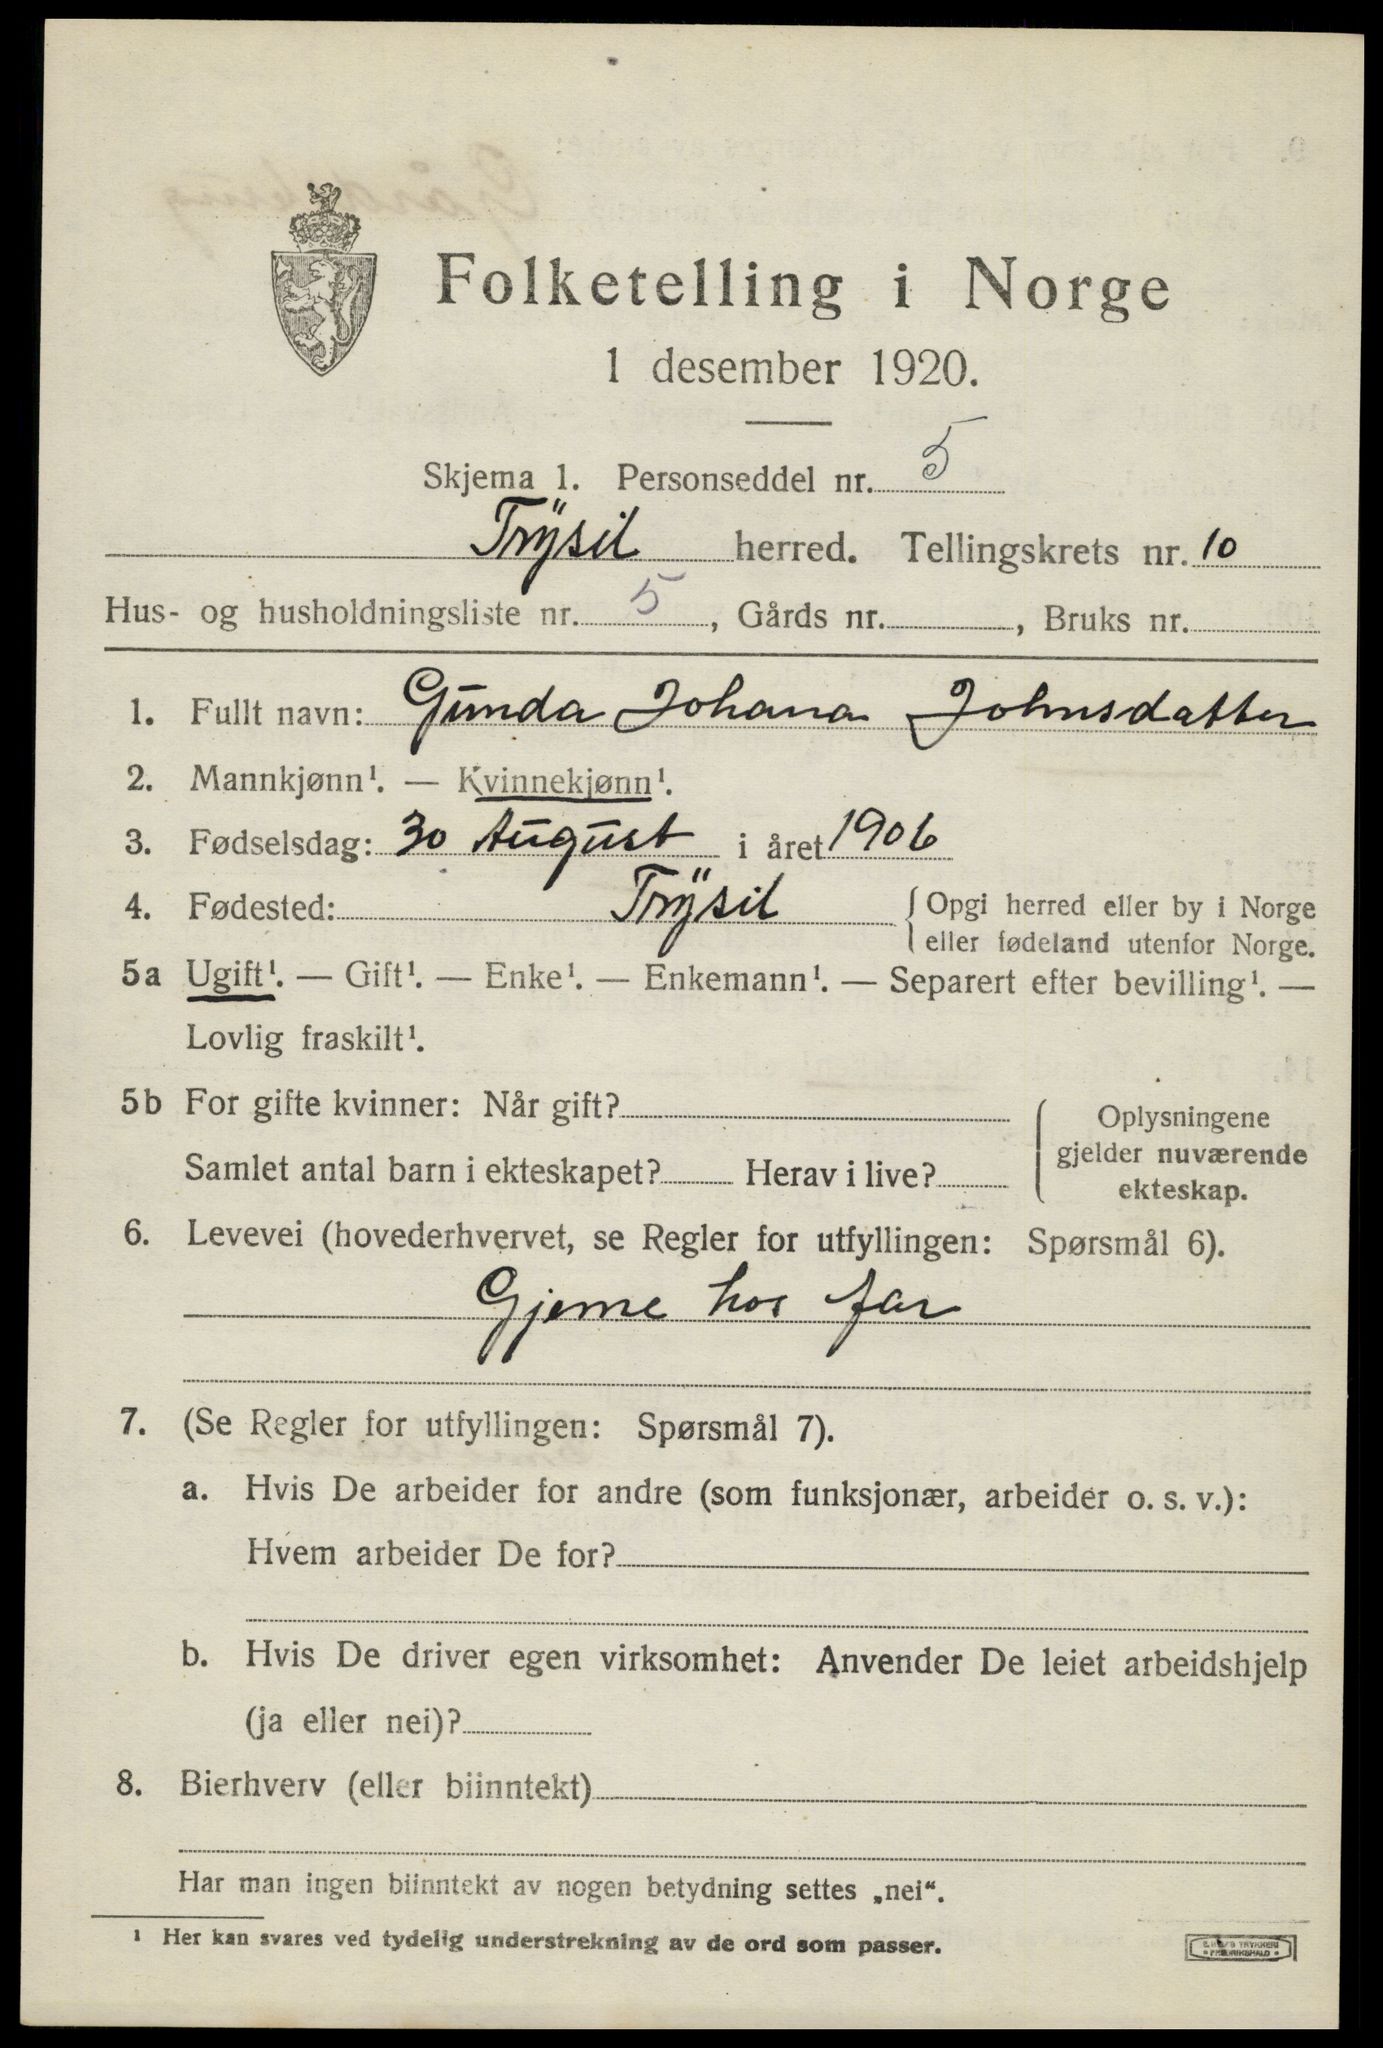 Folketelling i Norge
1 desember 1920.
Skjema 1. Personseddel nr. 5
Trÿsil herred. Tellingskrets nr. 10
Hus- og husholdningsliste nr. 5, Gårds nr. , Bruks nr.
1. Fullt navn: Gunda Johana Johnsdatter
2. Mannkjønn¹. — Kvinnekjønn¹.
3. Fødselsdag: 30 August i året 1906
4. Fødested: Trÿsil { Opgi herred eller by i Norge
eller fødeland utenfor Norge.
5a Ugift¹. — Gift¹. — Enke¹. — Enkemann¹. — Separert efter bevilling¹. —
Lovlig fraskilt¹.
5b For gifte kvinner: Når gift? Oplysningene
gjelder nuværende
Samlet antal barn i ekteskapet? Herav i live?
ekteskap.
6. Levevei (hovederhvervet, se Regler for utfyllingen: Spørsmål 6).
Gjeme hos far
7. (Se Regler for utfyllingen: Spørsmål 7).
a. Hvis De arbeider for andre (som funksjonær, arbeider o. s. v.):
Hvem arbeider De for?
b. Hvis De driver egen virksomhet: Anvender De leiet arbeidshjelp
(ja eller nei)?
8. Bierhverv (eller biinntekt)
Har man ingen biinntekt av nogen betydning settes „nei“.
¹ Her kan svares ved tydelig understrekning av de ord som passer.